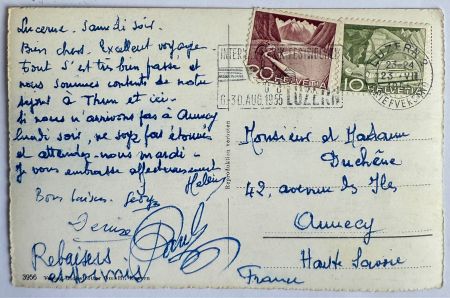 Lucerne, samedi soir.
Bien chers. Excellent voyage.
Tout s'est très bien passé et
nous sommes contents de notre
séjour à Thun et ici.
Si nous n'arrivons pas à Annecy
lundi soir, ne soyez pas étonnés
et attendez-nous mardi.
Je vous embrasse affectueusement
Helène
Bons baisers.
Denise
Rebaisers
Paul
3956
Reproduktion verboten
INTERN. MUSIKFESTWOCHEN
6.-30. AUG. 1955 LUZERN
20 HELVETIA
10 HELVETIA
LUZERN 2
23-24
23.VII
BRIEFVERSAND
Monsieur et Madame
Duchêne
42, avenue des Iles
Annecy
Haute Savoie
France